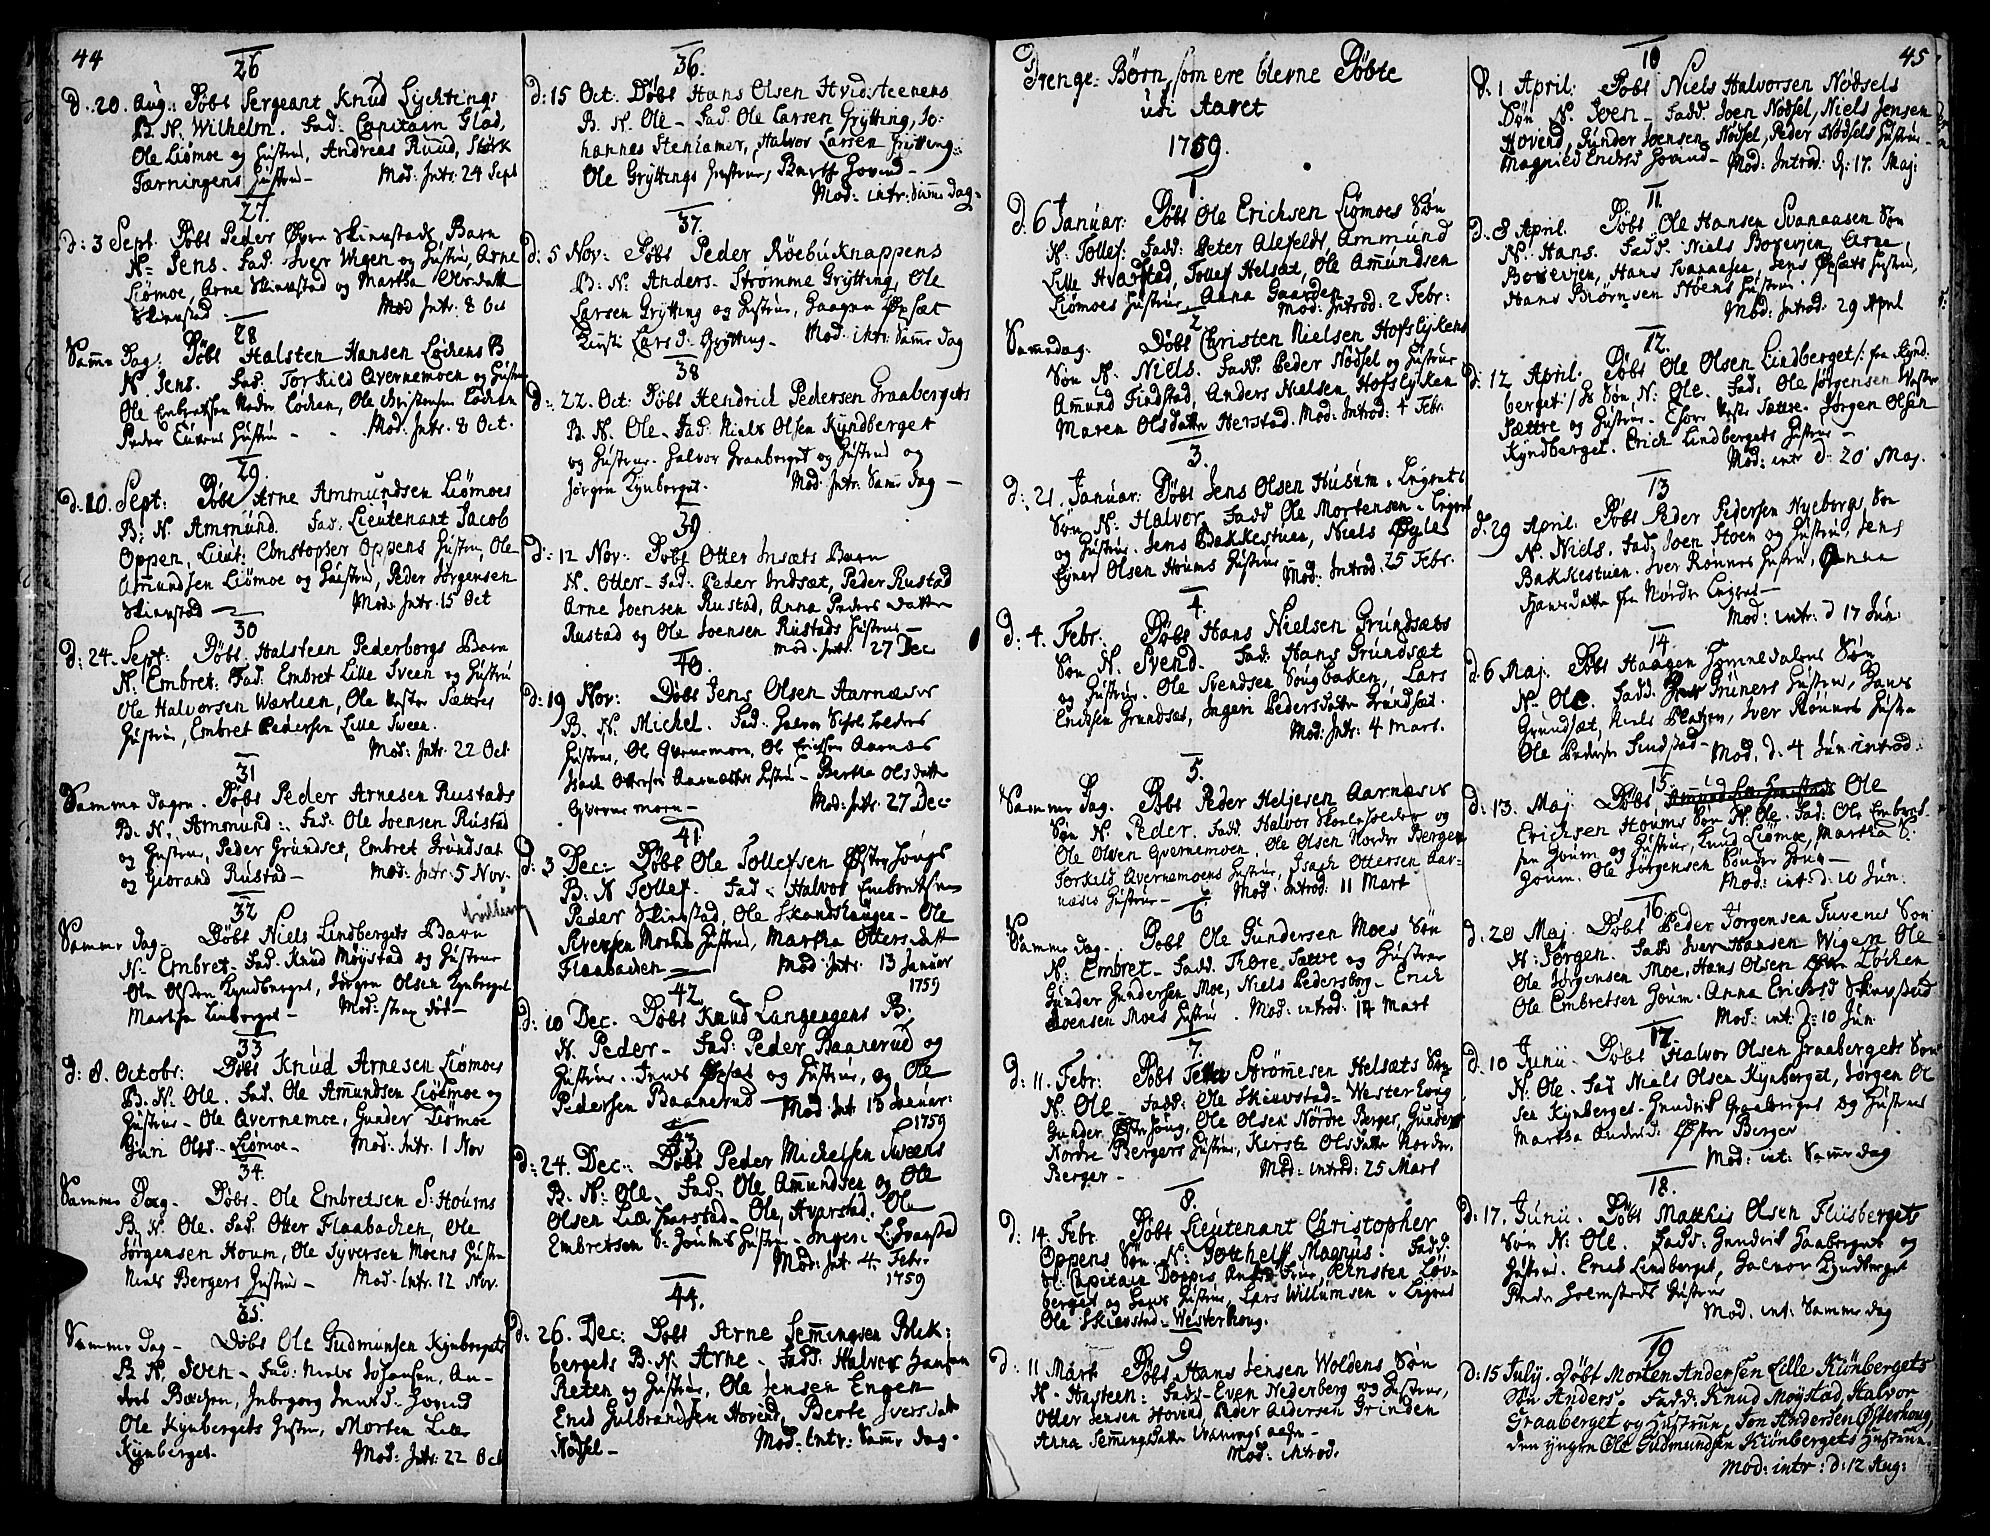 44
26
d. 20. Aug: Døbt Sergeant Knud Lychtings
B. N. Wilhelm. Fad: Capitain Glad,
Ole Liømoe og Hustru, Andreas Ruud, Størk
Tærningens Hustru - Mod: Intr: 24 Sept
27.
d: 3 Sept. Døbt Peder Øvre Skinstads Barn
N: Jens. Fad. Iver Wigen og Hustru, Arne
Liømoe, Arne Skinstad og Martha Olsdatt
Skinstad Mod Intr: 8 Oct
28
Samme Dag: Døbt Halsten Hansen Løckens B
N. Jens. Fad: Torkild Qvernemoen og Hustru
Ole Embretsen Nedre Løcken, Ole Christensen Løcken
Peder Hustru - Mod: Intr. 8 Oct.
29
d: 10. Sept: Døbt Arne Ammundsen Liømoes
B: N. Ammund. Fad: Lieutenant Jacob
Oppen, Lieut: Christopher Oppens Hustru, Ole
Amundsen Liømoe og Hustru, Peder Jørgensen
Skinstad - Mod: Intr: 15 Oct
30
d: 24. Sept: Døbt Halsteen Pederborgs Barn
N: Embret: Fad: Embret Lille Sveen og Hustru
Ole Halvorsen Wærlien, Ole Vester Sættres
Hustru, Embret Pedersen Lille Sveen.
Mod: Intr: 22 Oct
31
Samme Dagen. Døbt Peder Arnesen Rustads
B. N. Ammund:. Fad: Ole Joensen Rustad
og Hustrue, Peder Grundset, Embret Grundsat
og Giørand Rustad - Mod: Intr: 5 Nov.
32
Samme dag - Døbt Niels Lindbergets Barn
N: Embret - Fad: Knud Møystad og Hustrue
Ole Olsen Kyndberget, Jørgen Olsen Kynberget
Martha Linberget - Mod: strax død -
33
d: 8. Octobr: Døbt Knud Arnesen Liømoes
B. N: Ole. Fad. Ole Amundsen Liømoe og
Hustrue - Ole Qvernemoe, Gunder Liømoe
Guri Olsd. Liømoe - Mod: Intr: 1 Nov
34.
Samme Dag - Døbt - Ole Embretsen S: Houms
B. N. Ole. Fad. Otter Flaabachen, Ole
Jørgensen Houm, Ole Syversen Moens Hustru
Niels Bergers Hustrue - Mod: Intr. 12 Nov.
35.
Samme Dag - Døbt Ole Gudmunsen Kynbergets
B N. Sven - Fad: Niels Johansen, An-
ders Bæchen, Inbgorg Hovind
Ole Kynbergets Hustru, Morten Lille
Kynberget. Mod: Intr: 22 Oct
36.
d: 15 Oct. Døbt Hans Olsen Hvidsteenens
B. N. Ole - Fad. Ole Larsen Grytting, Jo:
hannes Stenlamer, Halvor Larsen Grytting:
Ole Gryttings Hustrue, Barth Hovind -
Mod: intr: Samme dag -
37.
d: 5 Nov: Døbt Peder Röebuknappens
B: N: Anders - Strømme Grytting, Ole
Larsen Grytting og Hustrue, Haagen Opsæt
Kirsti Lars d: Grytting - Mod: intr: Samme dag
38
d: 22. Oct: Døbt Hendrick Pedersen Graabergets
B. N. Ole - Fad: Niels Olsen Kyndberget
og Hustrue. Halvor Graaberget og Hustrue og
Jørgen Kynberget. Mod: Intr: Sam: dag -
39
d: 12 Nov: Døbt Otter Insæts Barn
N. Otter - Fad: Peder Indsæt, Peder Rustad
Arne Joensen Rustad, Anna Peders Datter
Rustad og Ole Joensen Rustads Hustrue -
Mod: Intr: 27 Dec
40.
d: 19 Nov: Døbt Jens Olsen Aarnæses
B. N. Michel. Fad: Halvor Scholeholders
Hustrue, Ole Qvernemoen, Ole Ericksen Aarnæs
Isach Ottersen Aarnæses Hustru - Bertha Olsdatter
Qvernemoen - Mod: Intr: 27 Dec:
41
d: 3 Dec: Døbt Ole Tollefsen Østerhougs
B. N Tollef. Fad - Halvor Embretsen
Peder Skinstad, Ole Skandshaugen - Ole
Syversen Moens Hustrue, Martha Ottersdatt
Flaabachen Mod: Intr: 13 Januar
1759
42.
d: 10 Dec. Døbt Knud Langengens B:
N. Peder - Fad: Peder Baanerud og
Hustrue. Jens Opsæt og Hustrue, og Ole
Pedersen Baanerud - Mod: Int: 13 Januar:
1759
43
d: 24. Dec: Døbt Peder Michelsen Sveens
B: N: Ole. Fad: Ole Ammundsen og Ole
Olsen Lille Hvarstad - Ole, Hvarstad. Ole
Embretsen S: Houms Hustrue - Inger: L. Hvarstad
Mod: Int: 4 Febr:
1759
44.
d: 26. Dec: Døbt Arne Semingsen Blek:
bergets B. N. Arne - Fadd. Halvor Hansen
Reten og Hustrue, Ole Jensen Engen
Erich Gulbrandsen Hovind, Berte Iversdatt
Nødsel - Mod: Intr: Samme dag -
45
Drenge-Børn, som ere blevne Døbte
udi Aaret
1759.
1
d. 6 Januar: Døbt Ole Erichsen Liømoes Søn
N: Tollef: Fadd: Peter Alefeldt, Ammund
Lille Hvarstad, Tollef Helsæt, Ole Ammundsen
Liømoes Hustrue, Anna Gaarder
Mod: Introd: 2 Febr:
2
Sammedag: Døbt Christen Nielsen Hofslykens
Søn N. Niels. Fadd. Peder Nødsel og Hustrue
Amund Findstad, Anders Nielsen Hofslyken
Maren Olsdatter Herstad. Mod: Introd: 4 Febr.
3.
d: 21. Januar: Døbt Jens Olsen Husum i Lugnets
Søn N: Halvor. Fadd Ole Mortensen i Lugnet
og Hustrue. Jens Bakkestuen, Niels Øgle
Eyner Olsen Houms Hustrue Mod: Introd: 25 Febr.
4.
d: 4. Febr: Døbt Hans Nielsen Grundsæts
Søn N. Svend. Fad: Hans Grundsæt
og Hustrue. Ole Svendsen Søugbaken, Lars
Ericksen Grundsæt, Ingeri Pedersdatter Grundsæt.
Mod: Intr: 4 Mart.
5.
Samme Dag. Døbt Peder Heljesen Aarnæses
Søn N. Peder. Fadd. Halvor Skoleholder og
Ole Olsen Qvernemoen, Ole Olsen Nordre Berger
Torkild Qvernemoens Hustrue, Isach Ottersen Aar-
næses Hustrue - Mod: Introd: 11 Mart
6
Samme dag - Døbt Ole Gundersen Moes Søn
N: Embret - Fadd. Thore Sættre og Hustrue
Gunder Gundersen Moe, Niels Pedersborg - Erich
Svensen Moes Hustrue. Mod: introd: 14 Mart
7.
d: 11. Febr: Døbt Strømesen Helsæts Søn
N. Ole - Fadd: Ole Skinstad - Westerhoug
Gunder Østerhoug, Ole Olsen Nordre Berger, Gunder
Nordre Bergers Hustrue, Kirste Olsdatter Nordre
Berger - Mod: introd: 25 Mart
8.
d: 14. Febr: Døbt Lieutenant Christopher
Oppens Søn N. Gotthelf Magnus. Fadd.
Capitain Doppis Frue, Christen Løv-
berget og Hans Hustrue, Lars Willumsen i Lugnet
Ole Skinstad - Westerhoug.
9
d: 11 Mart Døbt Hans Jensen Woldens Søn
N. Hasteen: Fadd - Even Nederberg og Hustrue,
Otter Jensen Hovend, Peder Andersen Grinden
Anna Semmingsdatter
Mod: introd.
10
d: 1 April: Døbt Niels Halvorsen Nødsels
Søn N. Joen - Fadd. Joen Nødsel, Niels Jensen
Hovind, Gunder Joensen Nødsel, Peder Nødsels Hustrue -
Magnild Ericksd Hovind - Mod: Introd: d: 17. Maj:
11.
d. 8 April. Døbt Ole Hansen Svanaasen Søn
N. Hans. Fadd. Niels Borevjen Arne
Borevjen, Hans Svanaasen, Jens Opsæts Hustrue,
Hans Biørnsen Stoens Hustrue.
Mod: Introd: 29 April
12.
d: 12 April. Døbt Ole Olsen Lindberget /: fra Kynd:
berget :/ Søn N: Ole. Fad. Ole Jørgensen Vester
Sættre og Hustrue - Vester Sættre. Jørgen Olsen
Kyndberget. Erich Lindbergets Hustrue -
Mod: intr d: 20 Maj.
13
d: 29 April: Døbt Peder Pedersen Nyebergs Søn
N. Niels. Fad. Joen Stoen og Hustrue, Jens
Bakkestuen. Iver Rønnes Hustru, Anna
Hansdatter fra Nordre Lugnet -
Mod: intr. d 17 Jun:
14
d. 6 Maj. Døbt Haagen Himmeldalens Søn
N. Ole. Fadd. Gruners Hustrue, Hans
Grundsæt, Niels Platzen, Iver Rønnes Hustrue
Ole Pedersen Findstad - Mod, d: 4 Jun: introd:
15
d: 13. Maj. Døbt Ole
Erichsen Houms Søn N. Ole. Fad: Ole Embret-
sen Houm og Hustrue, Knud Liømoe, Martha E.
Houm. Ole Jørgensen Sønder Houm -
Mod: int: d: 10 Jun:
16.
d: 20 Maj. Døbt Peder Jørgensen Tuvenes Søn
N. Jørgen. Fadd Iver Hansen Wigen Ole
Ole Jørgensen Moe, Hans Olsen Øvre Løcken
Ole Embretsen Houm. Anna Ericksd Skinstad
Mod: int: d: 10 Jun
17.
d: 10 Junii. Døbt Halvor Olsen Graabergets Søn
N. Ole. Fad Niels Olsen Kynberget, Jørgen Ol
sen Kynberget. Hendrick Graaberget og Hustrue
Martha Andersd: Østre Berger
Mod: int: Samme dag
18.
d: 17. Junii. Døbt Matthis Olsen Fliisbergets
Søn N: Ole. Fadd: Hendrick Graaberget og
Hustrue. Erick Lindberget, Halvor Kyndberget
Peder Holmsteds Hustrue
Mod. int: Samme dag
19
d: 15 July. Døbt Morten Andersen Lille Kiönbergets
Søn Anders. Fadd: Knud Moystad, Halvor
Graaberget og Hustrue, Jon Andersen Østerhoug,
den yngre Ole Gudmundsen Kiönbergets Hustrue.
Mod: intr: d: 12 Aug: